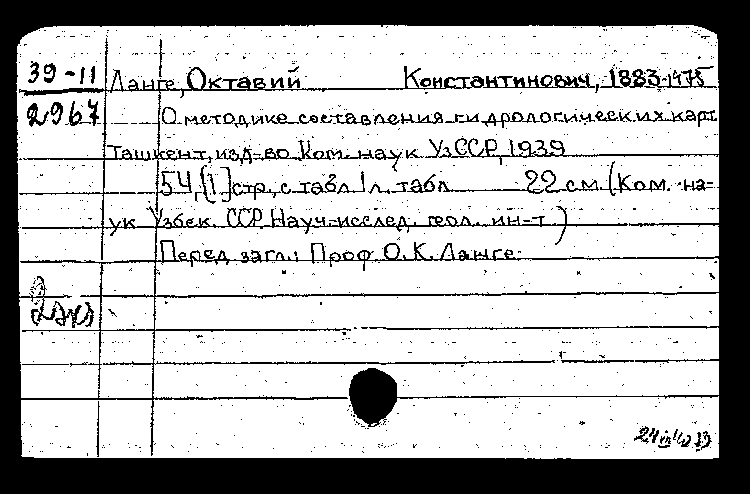 39-11
2967
Ланге, Октавий Константинович, 1883-1975
О методике составления гидрологических карт
Ташкент, изд-во Ком. наук УзССР, 1939
54, [1] стр., с табл. 1 л. табл. 22 см. (Ком. на-
ук Узбек. ССР. Науч.-исслед. геол. ин-т.)
Перед загл.: Проф. О. К. Ланге.
2 экз